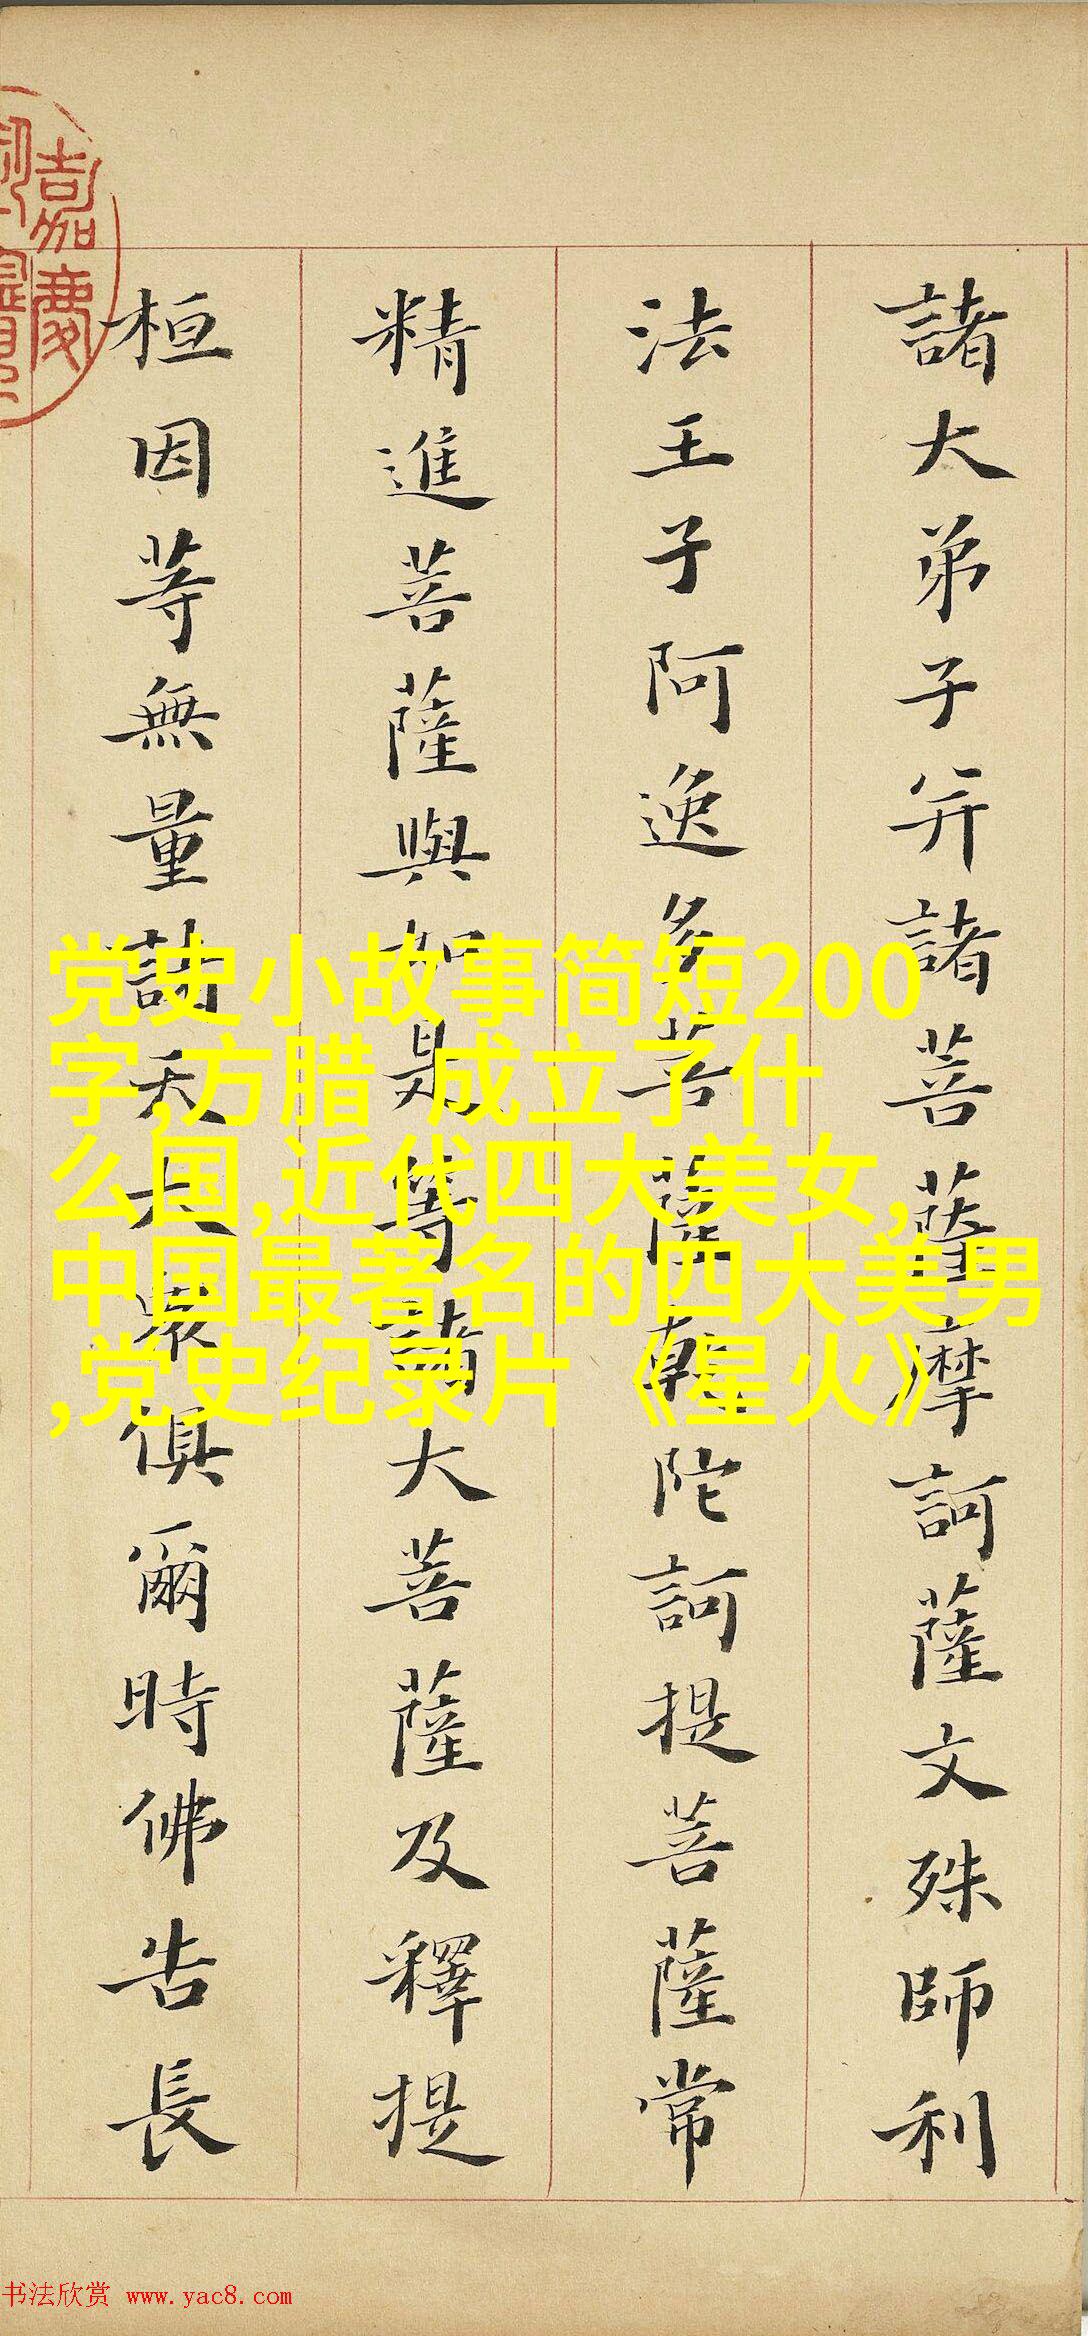 諸大弟子并諸菩薩摩訶薩文殊師利
法王子阿逸多菩薩乾陀訶提菩薩常
精進菩薩與如是等諸大菩薩及釋提
桓因等無量諸天大衆俱爾時佛告長
嘉慶
党史小故事简短200
字,方腊 成立了什
么国,近代四大美女,
中国最著名的四大美男
,党史纪录片《星火》
书法欣赏 www.yac8.com